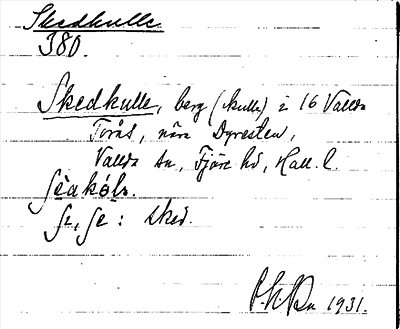 Skedkulle.
380.
Skedkulle, berg (kulle) i 16 Vallda
Torås, nära Dyresten,
Vallda sn, Fjäre hd, Hall. l.
: sked.
1931.